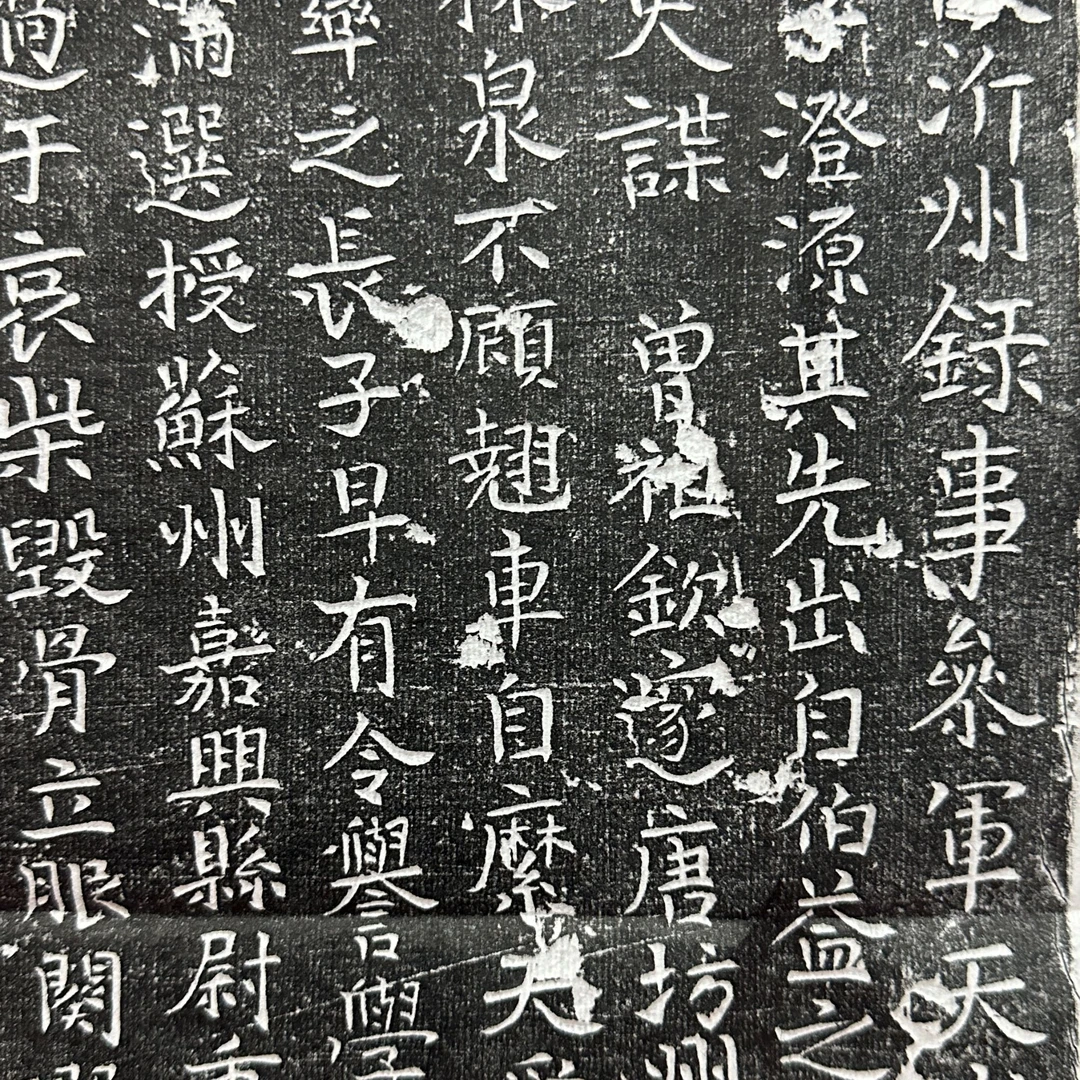 沂州録事叅軍天
澄源其先出自伯益之
諜 曾祖欽遂唐坊州
泉不顧翹車自縻天
之長子早有令譽學
滿選授蘇州嘉興縣尉
于哀柴毀骨立服闋